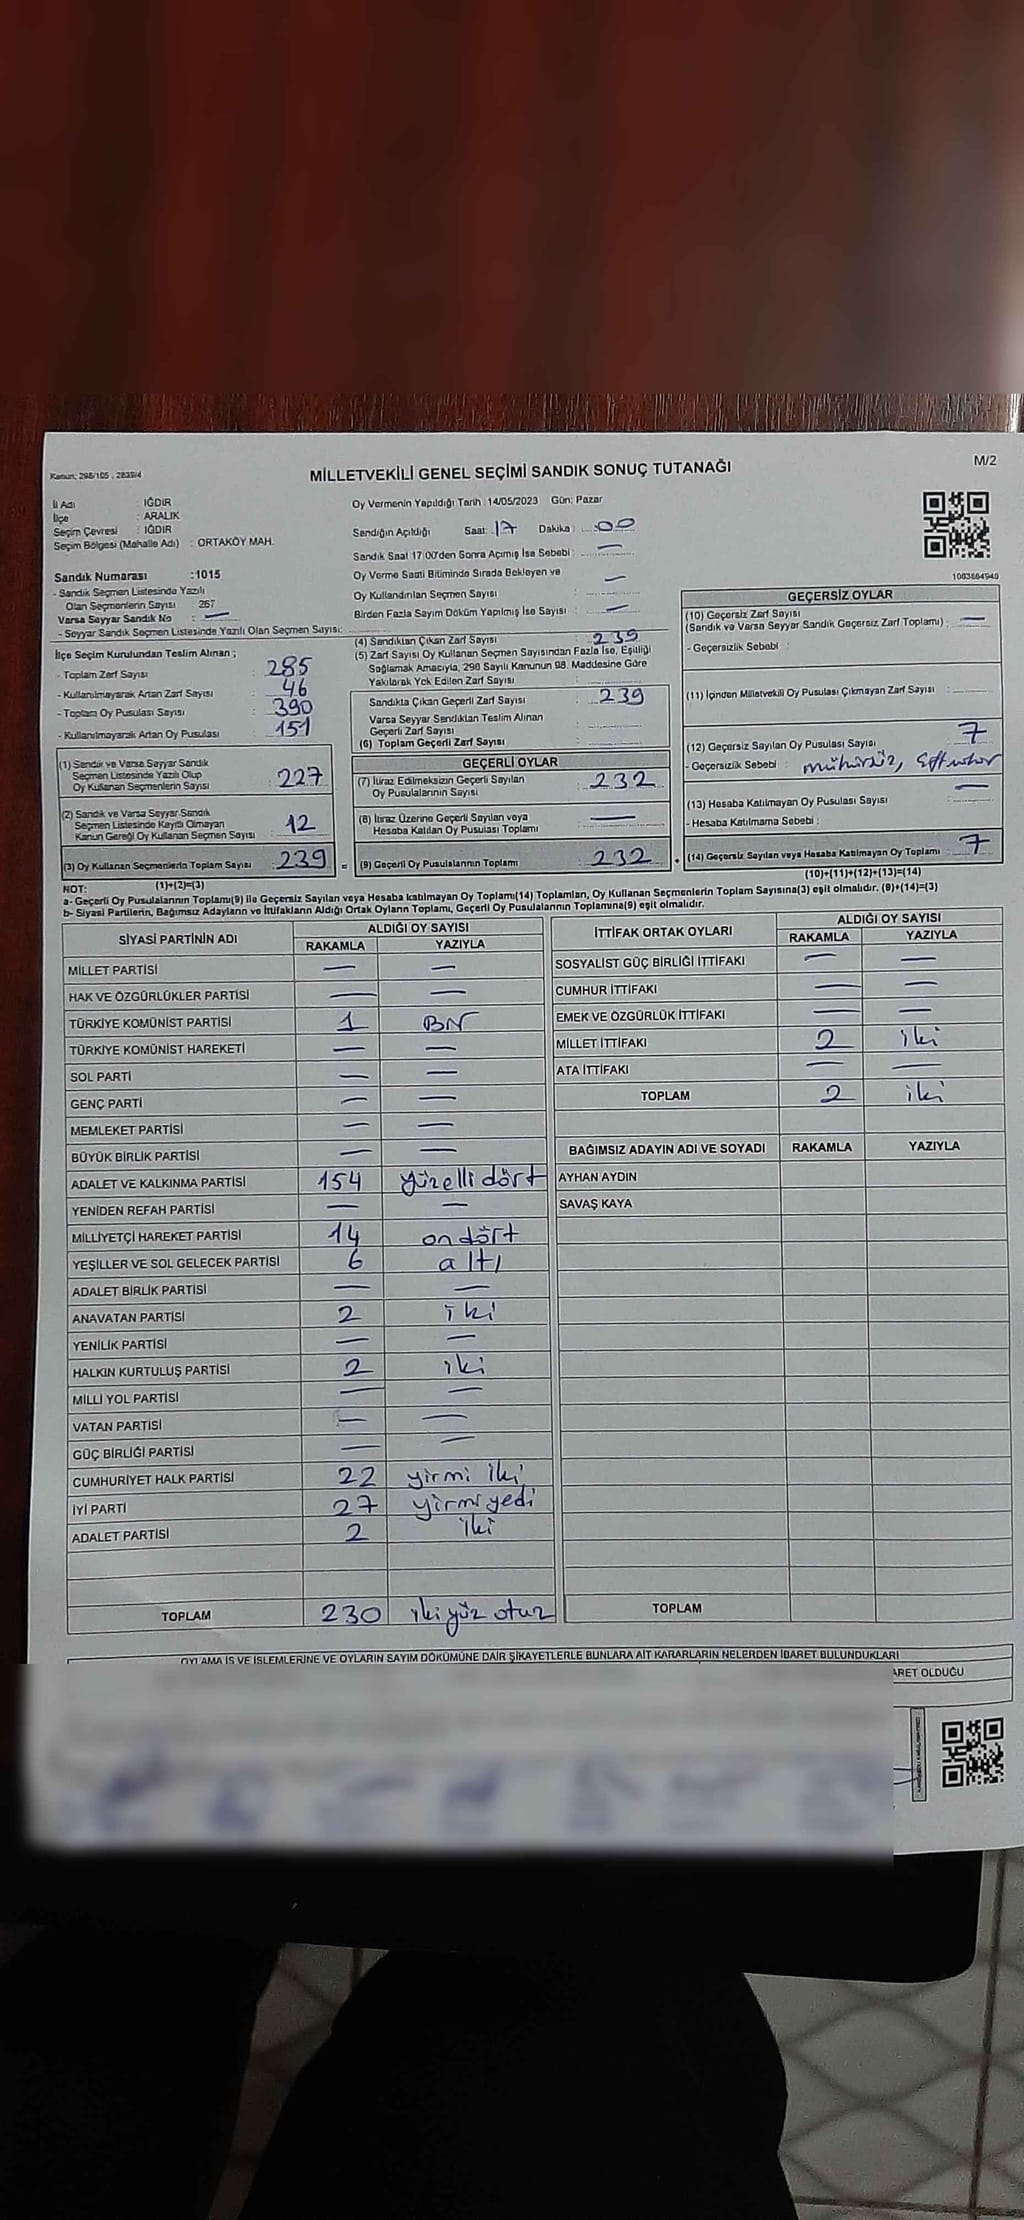 Kanun: 298/105 ; 2839/4
MİLLETVEKİLİ GENEL SEÇİMİ SANDIK SONUÇ TUTANAĞI
M/2
İl Adı : IĞDIR
İlçe : ARALIK
Seçim Çevresi : IĞDIR
Seçim Bölgesi (Mahalle Adı) : ORTAKÖY MAH.
Sandık Numarası :1015
- Sandık Seçmen Listesinde Yazılı
Olan Seçmenlerin Sayısı : 267
Varsa Seyyar Sandık No : —
- Seyyar Sandık Seçmen Listesinde Yazılı Olan Seçmen Sayısı:
İlçe Seçim Kurulundan Teslim Alınan ;
- Toplam Zarf Sayısı : 285
- Kullanılmayarak Artan Zarf Sayısı : 46
- Toplam Oy Pusulası Sayısı : 390
- Kullanılmayarak Artan Oy Pusulası : 151
(1) Sandık ve Varsa Seyyar Sandık
Seçmen Listesinde Yazılı Olup
Oy Kullanan Seçmenlerin Sayısı : 227
(2) Sandık ve Varsa Seyyar Sandık
Seçmen Listesinde Kayıtlı Olmayan
Kanun Gereği Oy Kullanan Seçmen Sayısı : 12
(3) Oy Kullanan Seçmenlerin Toplam Sayısı : 239 =
Oy Vermenin Yapıldığı Tarih :14/05/2023 Gün: Pazar
Sandığın Açıldığı Saat: 17 Dakika : 00
Sandık Saat 17:00'den Sonra Açımış İse Sebebi : —
Oy Verme Saati Bitiminde Sırada Bekleyen ve
Oy Kullandırılan Seçmen Sayısı : —
Birden Fazla Sayım Döküm Yapılmış İse Sayısı : —
(4) Sandıktan Çıkan Zarf Sayısı : 239
(5) Zarf Sayısı Oy Kullanan Seçmen Sayısından Fazla İse, Eşitliği
Sağlamak Amacıyla, 298 Sayılı Kanunun 98. Maddesine Göre
Yakılarak Yok Edilen Zarf Sayısı :
Sandıkta Çıkan Geçerli Zarf Sayısı : 239
Varsa Seyyar Sandıktan Teslim Alınan
Geçerli Zarf Sayısı :
(6) Toplam Geçerli Zarf Sayısı :
GEÇERLİ OYLAR
(7) İtiraz Edilmeksizin Geçerli Sayılan
Oy Pusulalarının Sayısı : 232
(8) İtiraz Üzerine Geçerli Sayılan veya
Hesaba Katılan Oy Pusulası Toplamı : —
(9) Geçerli Oy Pusulalarının Toplamı : 232 +
1003864940
GEÇERSİZ OYLAR
(10) Geçersiz Zarf Sayısı
(Sandık ve Varsa Seyyar Sandık Geçersiz Zarf Toplamı) : —
- Geçersizlik Sebebi :
(11) İçinden Milletvekili Oy Pusulası Çıkmayan Zarf Sayısı :
(12) Geçersiz Sayılan Oy Pusulası Sayısı : 7
- Geçersizlik Sebebi : mühürsüz,
(13) Hesaba Katılmayan Oy Pusulası Sayısı : —
- Hesaba Katılmama Sebebi :
(14) Geçersiz Sayılan veya Hesaba Katılmayan Oy Toplamı : 7
NOT: (1)+(2)=(3)
(10)+(11)+(12)+(13)=(14)
a- Geçerli Oy Pusulalarının Toplamı(9) ile Geçersiz Sayılan veya Hesaba katılmayan Oy Toplamı(14) Toplamları, Oy Kullanan Seçmenlerin Toplam Sayısına(3) eşit olmalıdır. (9)+(14)=(3)
b- Siyasi Partilerin, Bağımsız Adayların ve İttifakların Aldığı Ortak Oyların Toplamı, Geçerli Oy Pusulalarının Toplamına(9) eşit olmalıdır.
SİYASİ PARTİNİN ADI ALDIĞI OY SAYISI
RAKAMLA YAZIYLA
MİLLET PARTİSİ — —
HAK VE ÖZGÜRLÜKLER PARTİSİ — —
TÜRKİYE KOMÜNİST PARTİSİ 1 BİR
TÜRKİYE KOMÜNİST HAREKETİ — —
SOL PARTİ — —
GENÇ PARTİ — —
MEMLEKET PARTİSİ — —
BÜYÜK BİRLİK PARTİSİ — —
ADALET VE KALKINMA PARTİSİ 154 yüzelli dört
YENİDEN REFAH PARTİSİ — —
MİLLİYETÇİ HAREKET PARTİSİ 14 on dört
YEŞİLLER VE SOL GELECEK PARTİSİ 6 altı
ADALET BİRLİK PARTİSİ — —
ANAVATAN PARTİSİ 2 iki
YENİLİK PARTİSİ — —
HALKIN KURTULUŞ PARTİSİ 2 iki
MİLLİ YOL PARTİSİ — —
VATAN PARTİSİ — —
GÜÇ BİRLİĞİ PARTİSİ — —
CUMHURİYET HALK PARTİSİ 22 yirmi iki
İYİ PARTİ 27 yirmi yedi
ADALET PARTİSİ 2 iki
TOPLAM 230 iki yüz otuz
İTTİFAK ORTAK OYLARI ALDIĞI OY SAYISI
RAKAMLA YAZIYLA
SOSYALİST GÜÇ BİRLİĞİ İTTİFAKI — —
CUMHUR İTTİFAKI — —
EMEK VE ÖZGÜRLÜK İTTİFAKI — —
MİLLET İTTİFAKI 2 iki
ATA İTTİFAKI — —
TOPLAM 2 iki
BAĞIMSIZ ADAYIN ADI VE SOYADI RAKAMLA YAZIYLA
AYHAN AYDIN
SAVAŞ KAYA
TOPLAM
OYLAMA İŞ VE İŞLEMLERİNE VE OYLARIN SAYIM DÖKÜMÜNE DAİR ŞİKAYETLERLE BUNLARA AİT KARARLARIN NELERDEN İBARET BULUNDUKLARI
ARET OLDUĞU